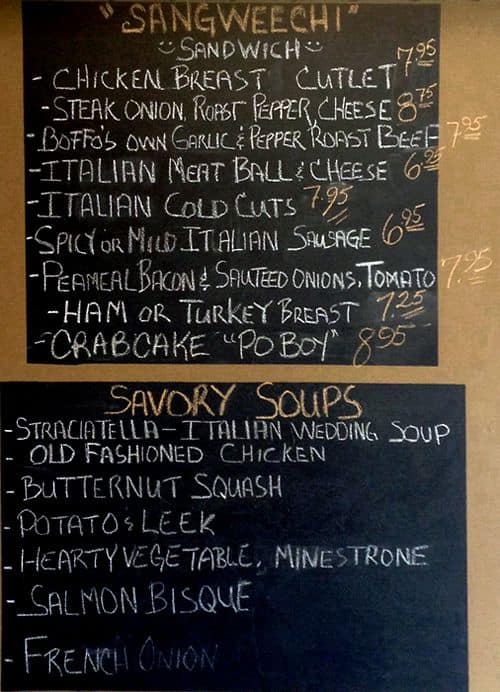 "SANGWEECHI"
SANDWICH
- CHICKEN BREAST CUTLET 7.95
- STEAK ONION, ROAST PEPPER, CHEESE 8.75
- BOFFO'S OWN GARLIC & PEPPER ROAST BEEF 7.95
- ITALIAN MEAT BALL & CHEESE 6.95
- ITALIAN COLD CUTS 7.95
- SPICY OR MILD ITALIAN SAUSAGE 6.95
- PEAMEAL BACON & SAUTEED ONIONS, TOMATO 7.95
- HAM OR TURKEY BREAST 7.25
- CRABCAKE "PO BOY" 8.95
SAVORY SOUPS
- STRACIATELLA - ITALIAN WEDDING SOUP
- OLD FASHIONED CHICKEN
- BUTTERNUT SQUASH
- POTATO & LEEK
- HEARTY VEGETABLE, MINESTRONE
- SALMON BISQUE
- FRENCH ONION